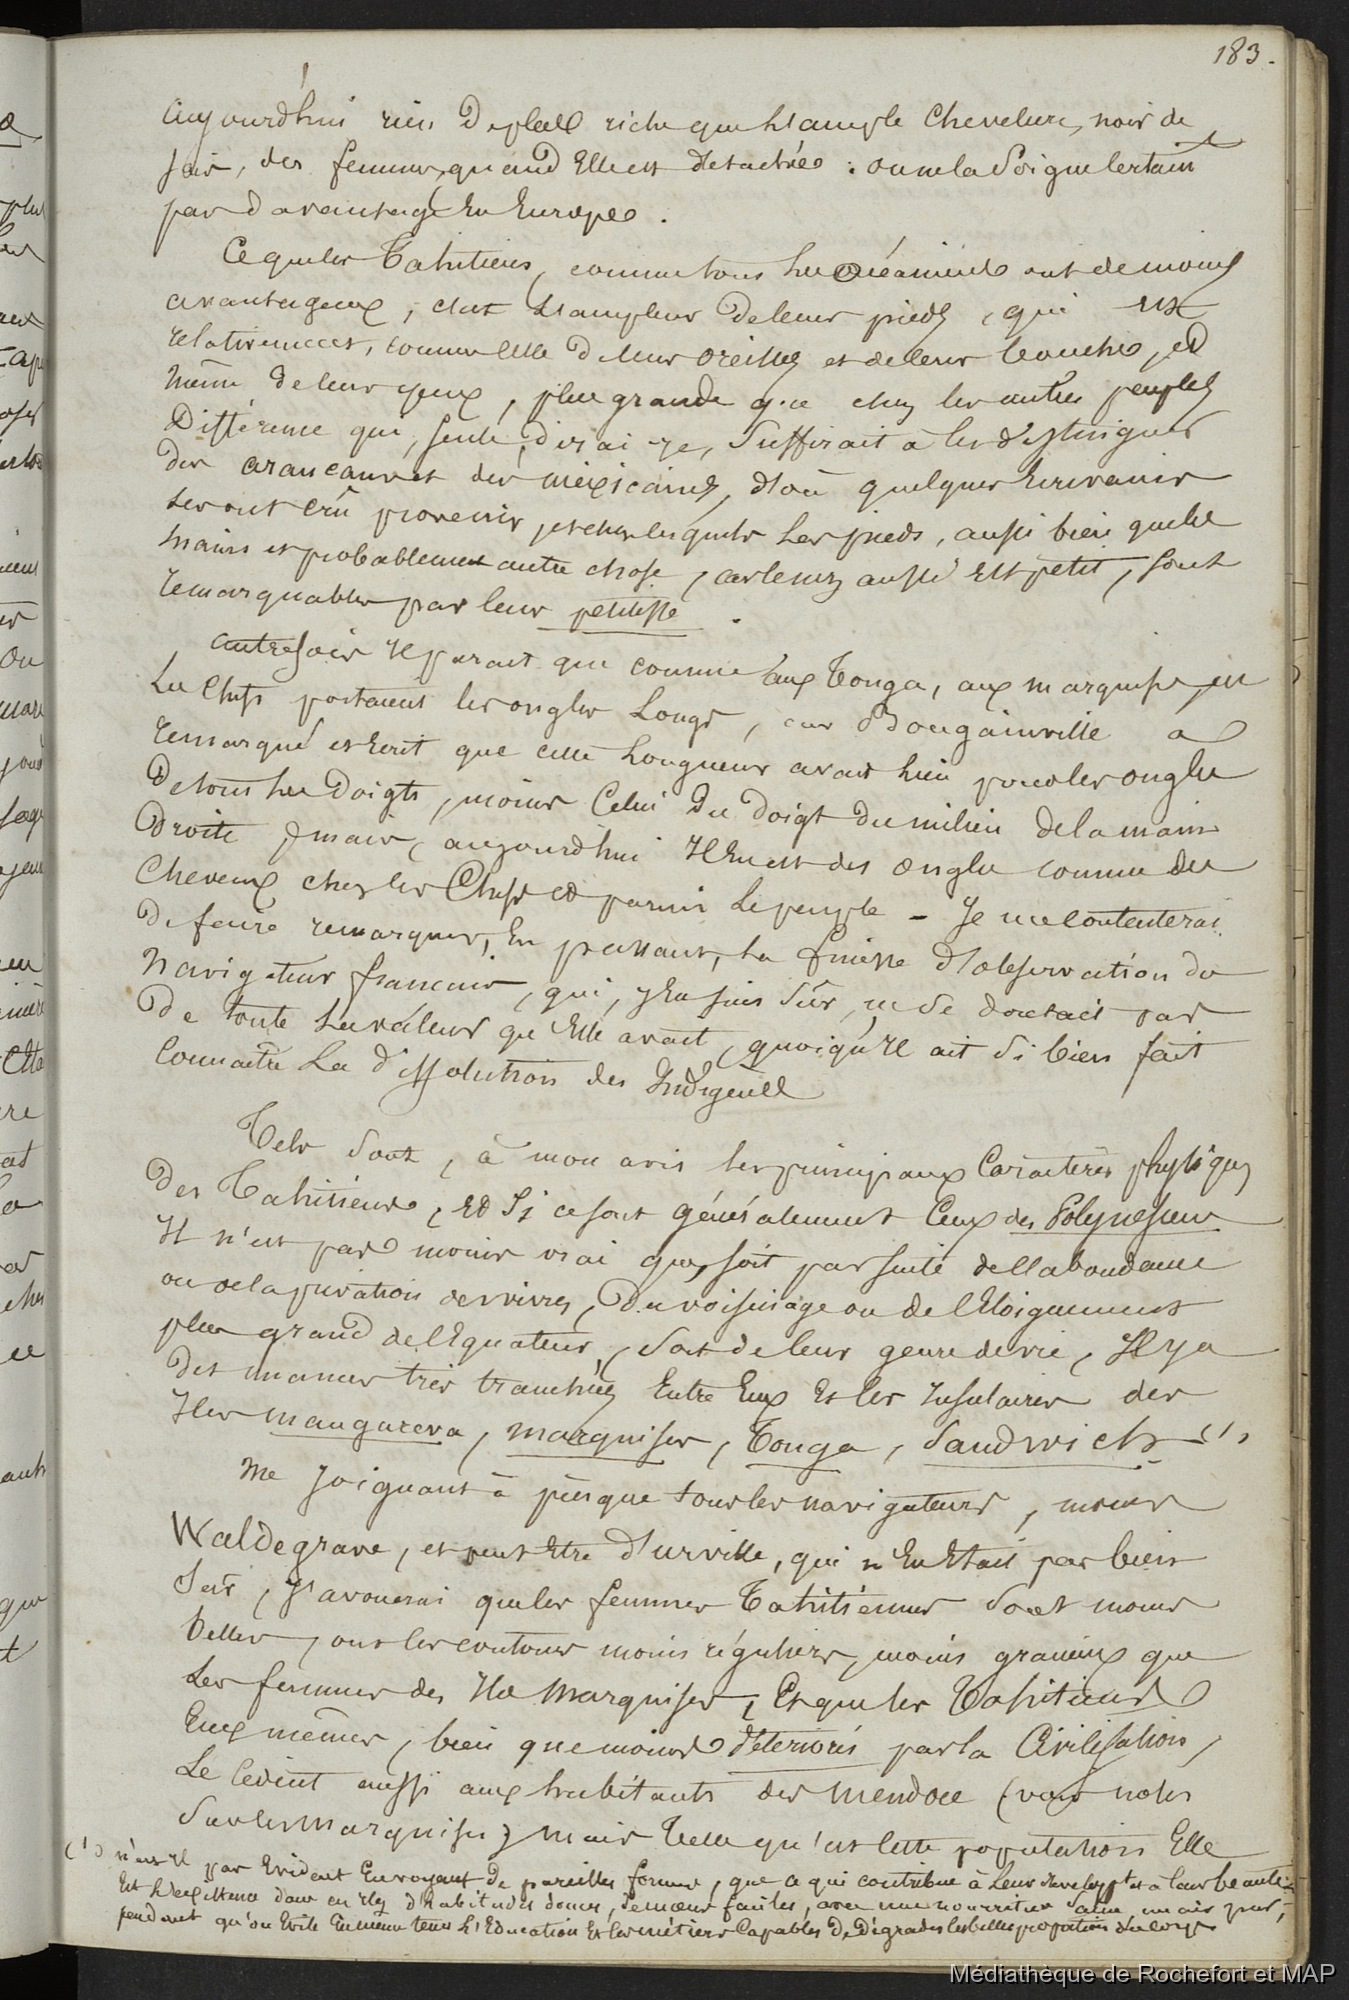 183.
aujourd'hui rien de plus riche que l'ample chevelure, noir de
jais, des femmes, quand Elle est detachée : on ne la soigne certain t
pas d'avantage En Europe.
Ce que les Tahitiens, comme tous les océaniens ont de moins
avantageux, c'est l'ampleur de leurs pieds, qui est
relativement, comme celle de leurs oreilles et de leur bouche, et
même de leurs yeux, plus grande que chez les autres peuples
Différence qui, seule, dirai-je, suffirait à les distinguer
des araucans et des mexicains, d'où quelques Ecrivains
les ont crû provenir, et chez lesquels les pieds, aussi bien que les
mains et probablement autre chose, car le nez aussi est petit, sont
remarquables par leur petitesse.
autrefois Il parait que comme aux Tonga, aux marquises,
Les Chefs portaient les ongles Longs, car Bougainville a
remarqué et Ecrit que cette longueur avait lieu pour les ongles
De tous les doigts, moins Celui du doigt du milieu de la main
droite; mais, aujourd'hui Il En est des ongles comme des
Cheveux chez les Chefs et parmi le peuple - Je me contenterai
De faire remarquer, En passant, la finesse d'observation du
Navigateur français, qui, j'En suis sûr, ne se doutait pas
De toute la valeur qu'Elle avait, quoiqu'Il ait si bien fait
Connaître La dissolution des Indigènes
Tels sont, à mon avis les principaux Caractères physiques
Des Tahitiens, Et Si ce sont généralement Ceux des Polynésiens
Il n'est pas moins vrai que, soit par suite de l'abondance
ou de la privation des vivres, Du voisinage ou de l'Eloignement
plus grand de l'Equateur, Soit de leur genre de vie, Il y a
Des nuances très tranchées Entre Eux Et les Insulaires des
Iles Mangareva, Marquises, Tonga, Sandwich (1)
Me Joignant à presque tous les navigateurs, moins
Waldegrave, et peut Etre d'urville, qui n'En Etait pas bien
Sûr, J'avouerai que les femmes Tahitiennes Sont moins
belles, ont les contours moins réguliers, moins gracieux que
Les femmes des Iles Marquises, Et que les Tahitiens
Eux mêmes, bien que moins détériorés par la Civilisation,
Le cèdent aussi aux habitants des Mendoce (voir notes
Sur les Marquises) mais Telle qu'est cette population Elle
(1) n'est Il pas Evident En voyant de pareilles formes, que ce qui contribue à leur développ t et à leur beauté
Est l'existence dans ces Iles d'habitudes douces, de mœurs faciles, avec une nourriture saine, un air pur,
pendant qu'on Evite En même tems L'Education Et les métiers Capables De Dégrader les belles proportions du corps
Médiathèque de Rochefort et MAP